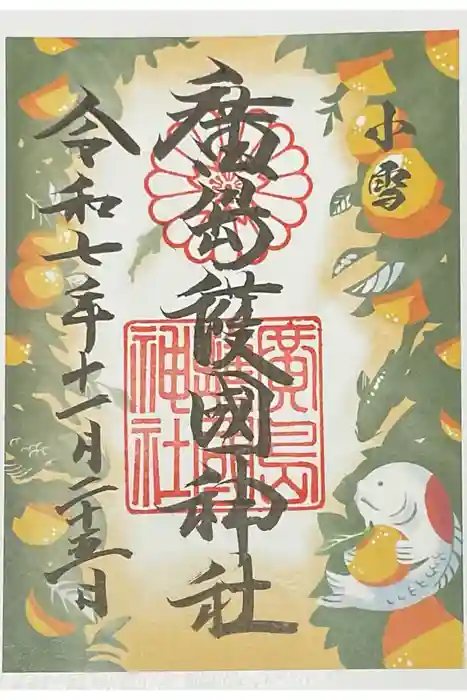 小雪
廣島護國神社
令和七年十一月二十五日
廣島
神社